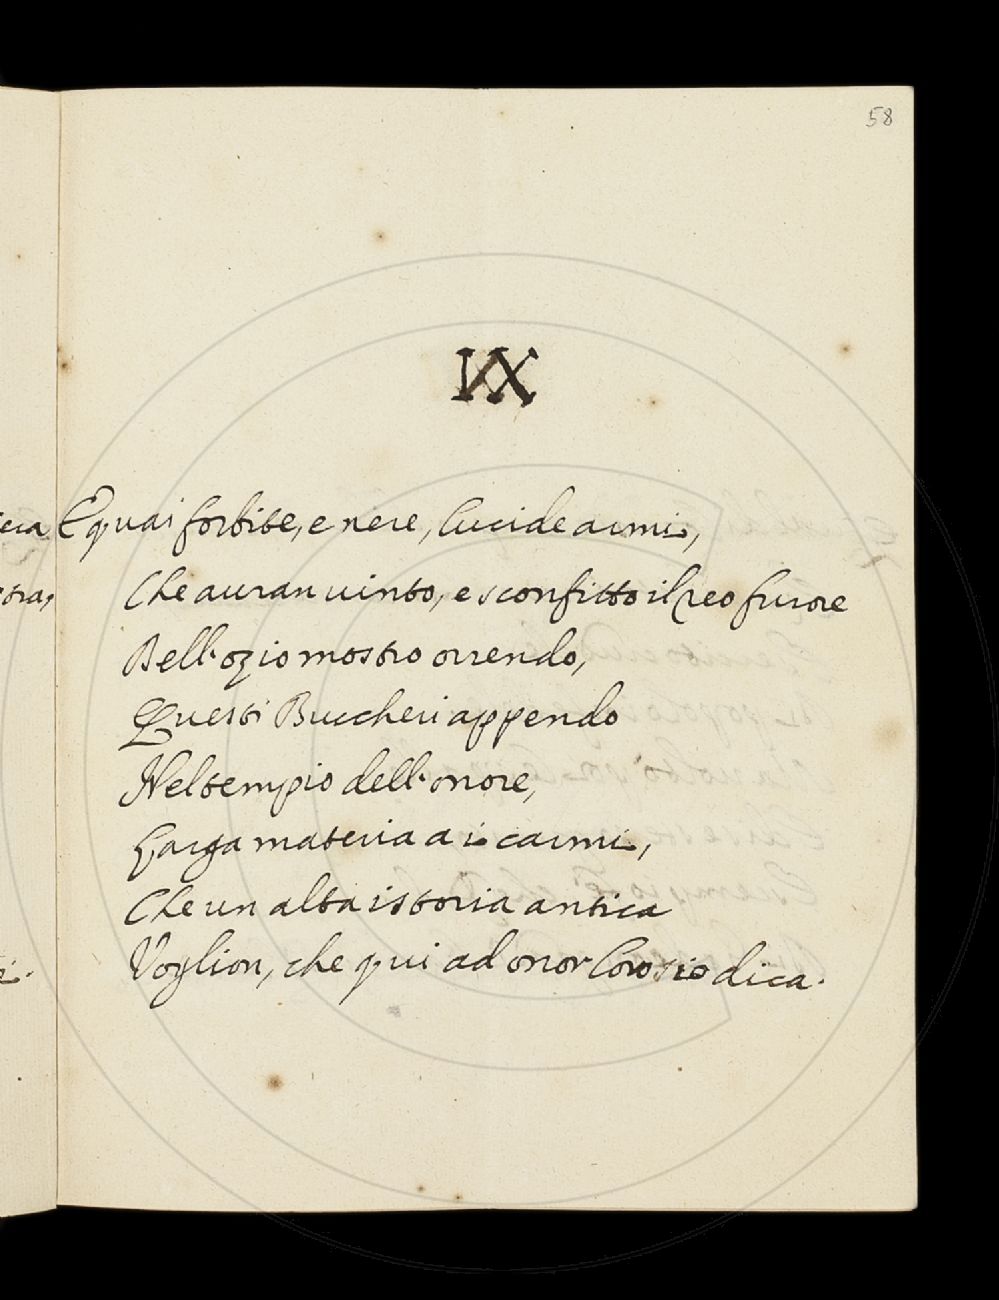 58
IX
E quai forbite, e nere, lucide armi,
Che auran uinto, e sconfitto il reo furore
Dell'ozio mostro orrendo,
Questi Buccheri appendo
Nel tempio dell'onore,
Larga materia a i carmi,
Che un alta istoria antica
Voglion, che qui ad onor loro si dica.